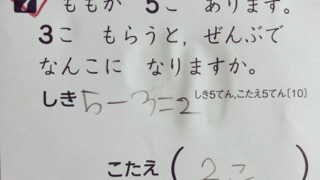 ももが 5こ あります。
3こ もらうと，ぜんぶで
なんこに なりますか。
しき 5-3=2 しき5てん,こたえ5てん〔10〕
こたえ ( 2こ )